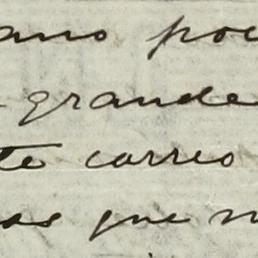 ano poc
grande
te correo
as que n